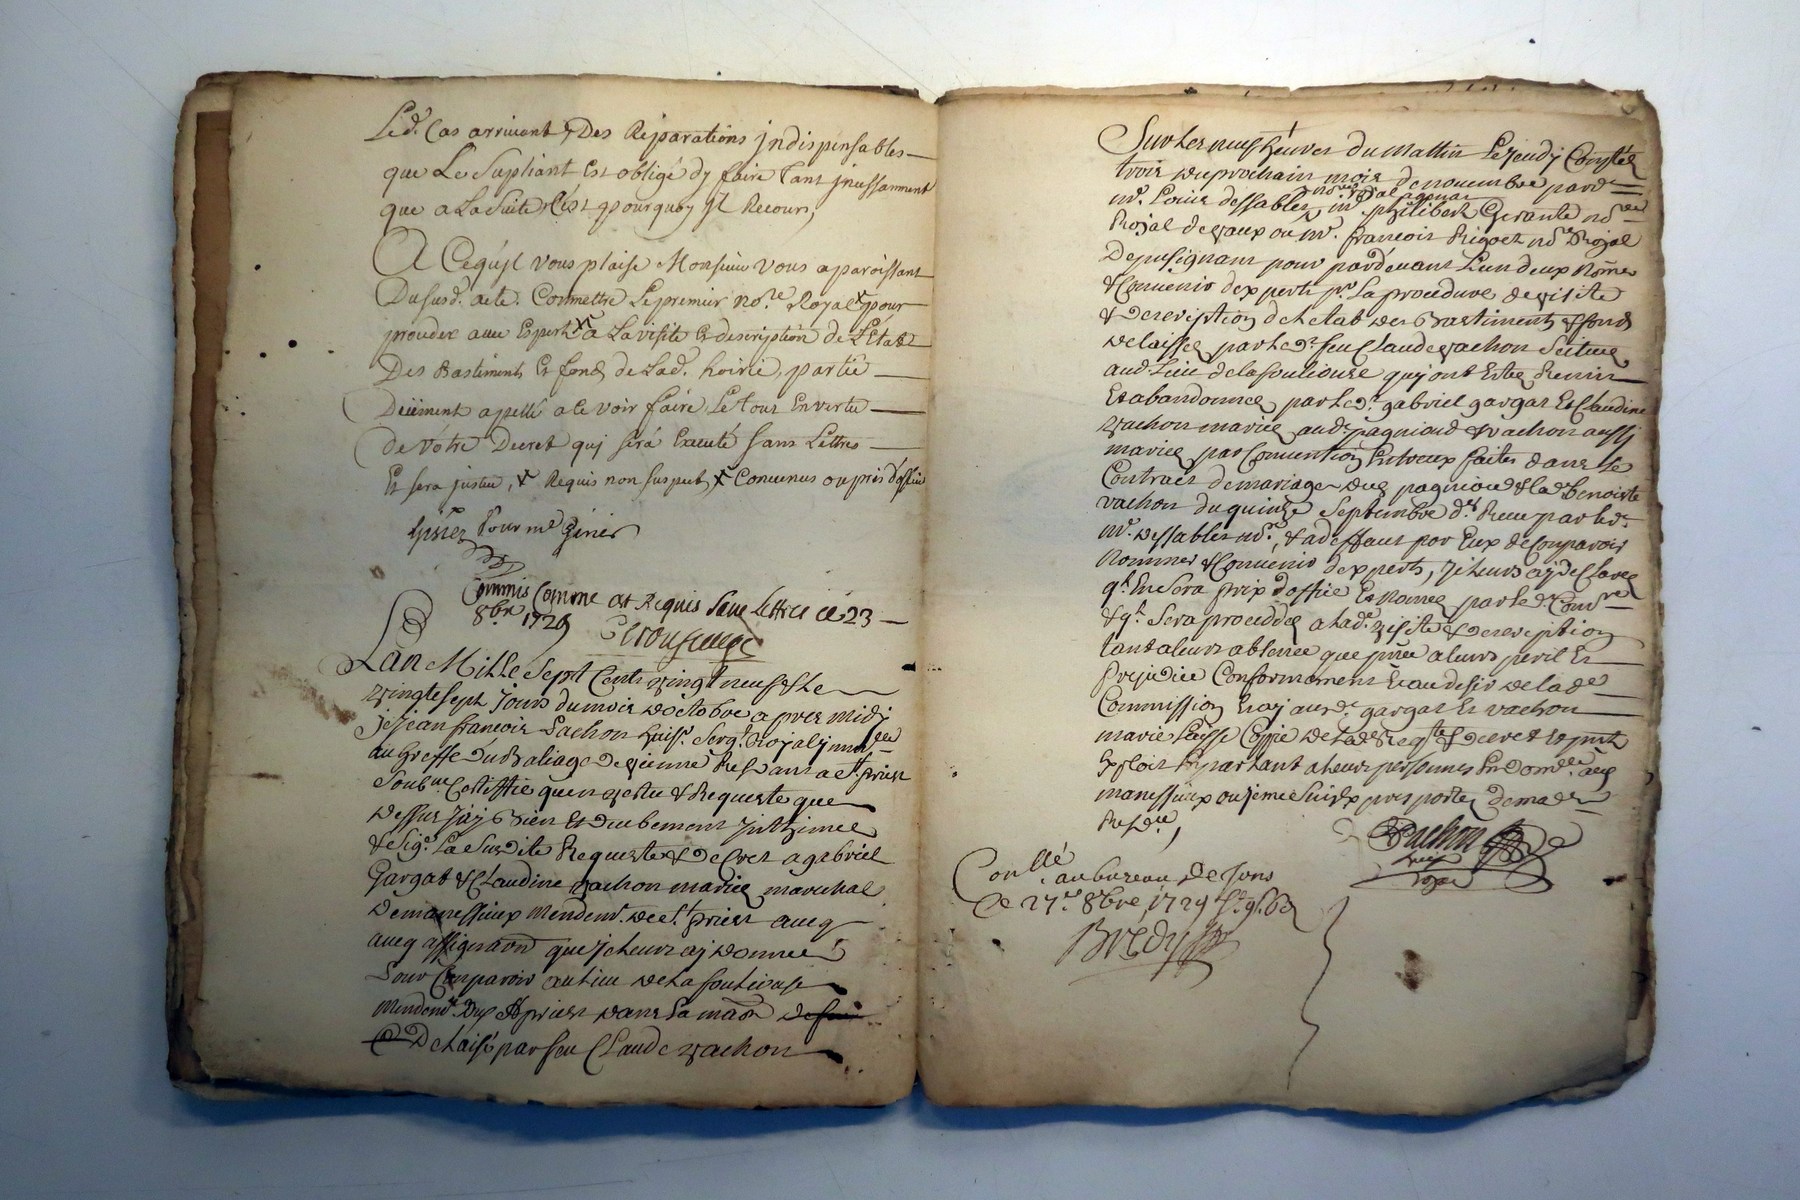 Led. Cas arrivant, Des Réparations jndispensables
que Le Supliant Est obligé dy faire tant jncessamment
que a La Suite, C'est pourquoy jl Recours,
A Cequ'jl vous plaise Monsieur vous aparoissant
Dususd. acte. Commettre Lepremier no.re Royal pour
proceder avec Experts a La visite & description de L'Etat
Des Bastiments Et fonds de Lad. hoirie, partie
Deüement appellé a le voir faire Le tout En vertu
de vôtre Decret quj sera Executé sans Lettres
Et sera justice, x Requis non suspect, x Convenus ou pris d'office
Pour me
Commis Comme est Requis Sans Lettres ce 23
8bre 1729
Lan Mille Sept Cents vingt neuf & le
vingtesept Jours du mois doctobre apres midj
Je Jean francois Vachon huiss. Serg.t Royal jmm.lé
au Greffe du Baliage de vienne Resd.ant a St. priest
Soub.né Certiffie quen vertu & Requeste que
dessus jay Bien Et deubement jnthimee
& Sig.é La Susdite Requeste & decret a gabriel
Gargat & Claudine vachon mariés marechal
de manessieux mendem.t de St. priest avecq
avecq assignaon que je leurs aj donnée
Pour Comparoir au lieu de la fouliouse
Mendem.t dud St priest dans La maôn
Delaisé par feu Claude vachon
Sur les neuf heures du Mattin Le jeudj Comptés
trois du prochain mois de novembre pard.t
m.e Louis dessables no.re royal m.e philibert Gerante no.re
Royal de vaux ou m.e francois Rigoet no.re Royal
De pusignans pour pardevant Lun deux Nômer
& Convenir dexperts p.r La procedure de visite
& description de letat des Bastiments & fonds
delaissés par led.t feu Claude vachon Scitués
aud. Lieu de la fouliouse quj ont Estes Remis
Et abandonnes par led.t gabriel gargat Et Claudine
vachon mariés aud. pagnioud & vachon aussj
mariés par Convention Entreux faites dans le
Contract de mariage dud pagnioud & lad. Benoiste
vachon du quinze Septembre d.r Receu par led.
m.e dessables no.re, & a deffaut par Eux de Comparoir
Nommer & Convenir dexperts, je leurs aj declarés
q.l En Sera prix doffice Et Només par led. Com.re
& q.l Sera proceddée a lad.e visite & description
tant a leurs absence que pnce a leurs peril Et
prejudice Conformement Et au desir de lad.e
Commission Et aj ausd. gargat Et vachon
mariés Laissé Coppie de lad.e Reqte & decret Et pnt
Exploit En parlant a leurs personnes En dom.lle aud
manessieux ou je me Suis Exprès porté de mad.
Resd.ce,
Vachon
Con.llé au bureau de Sons
Ce 27.e 8bre 1729